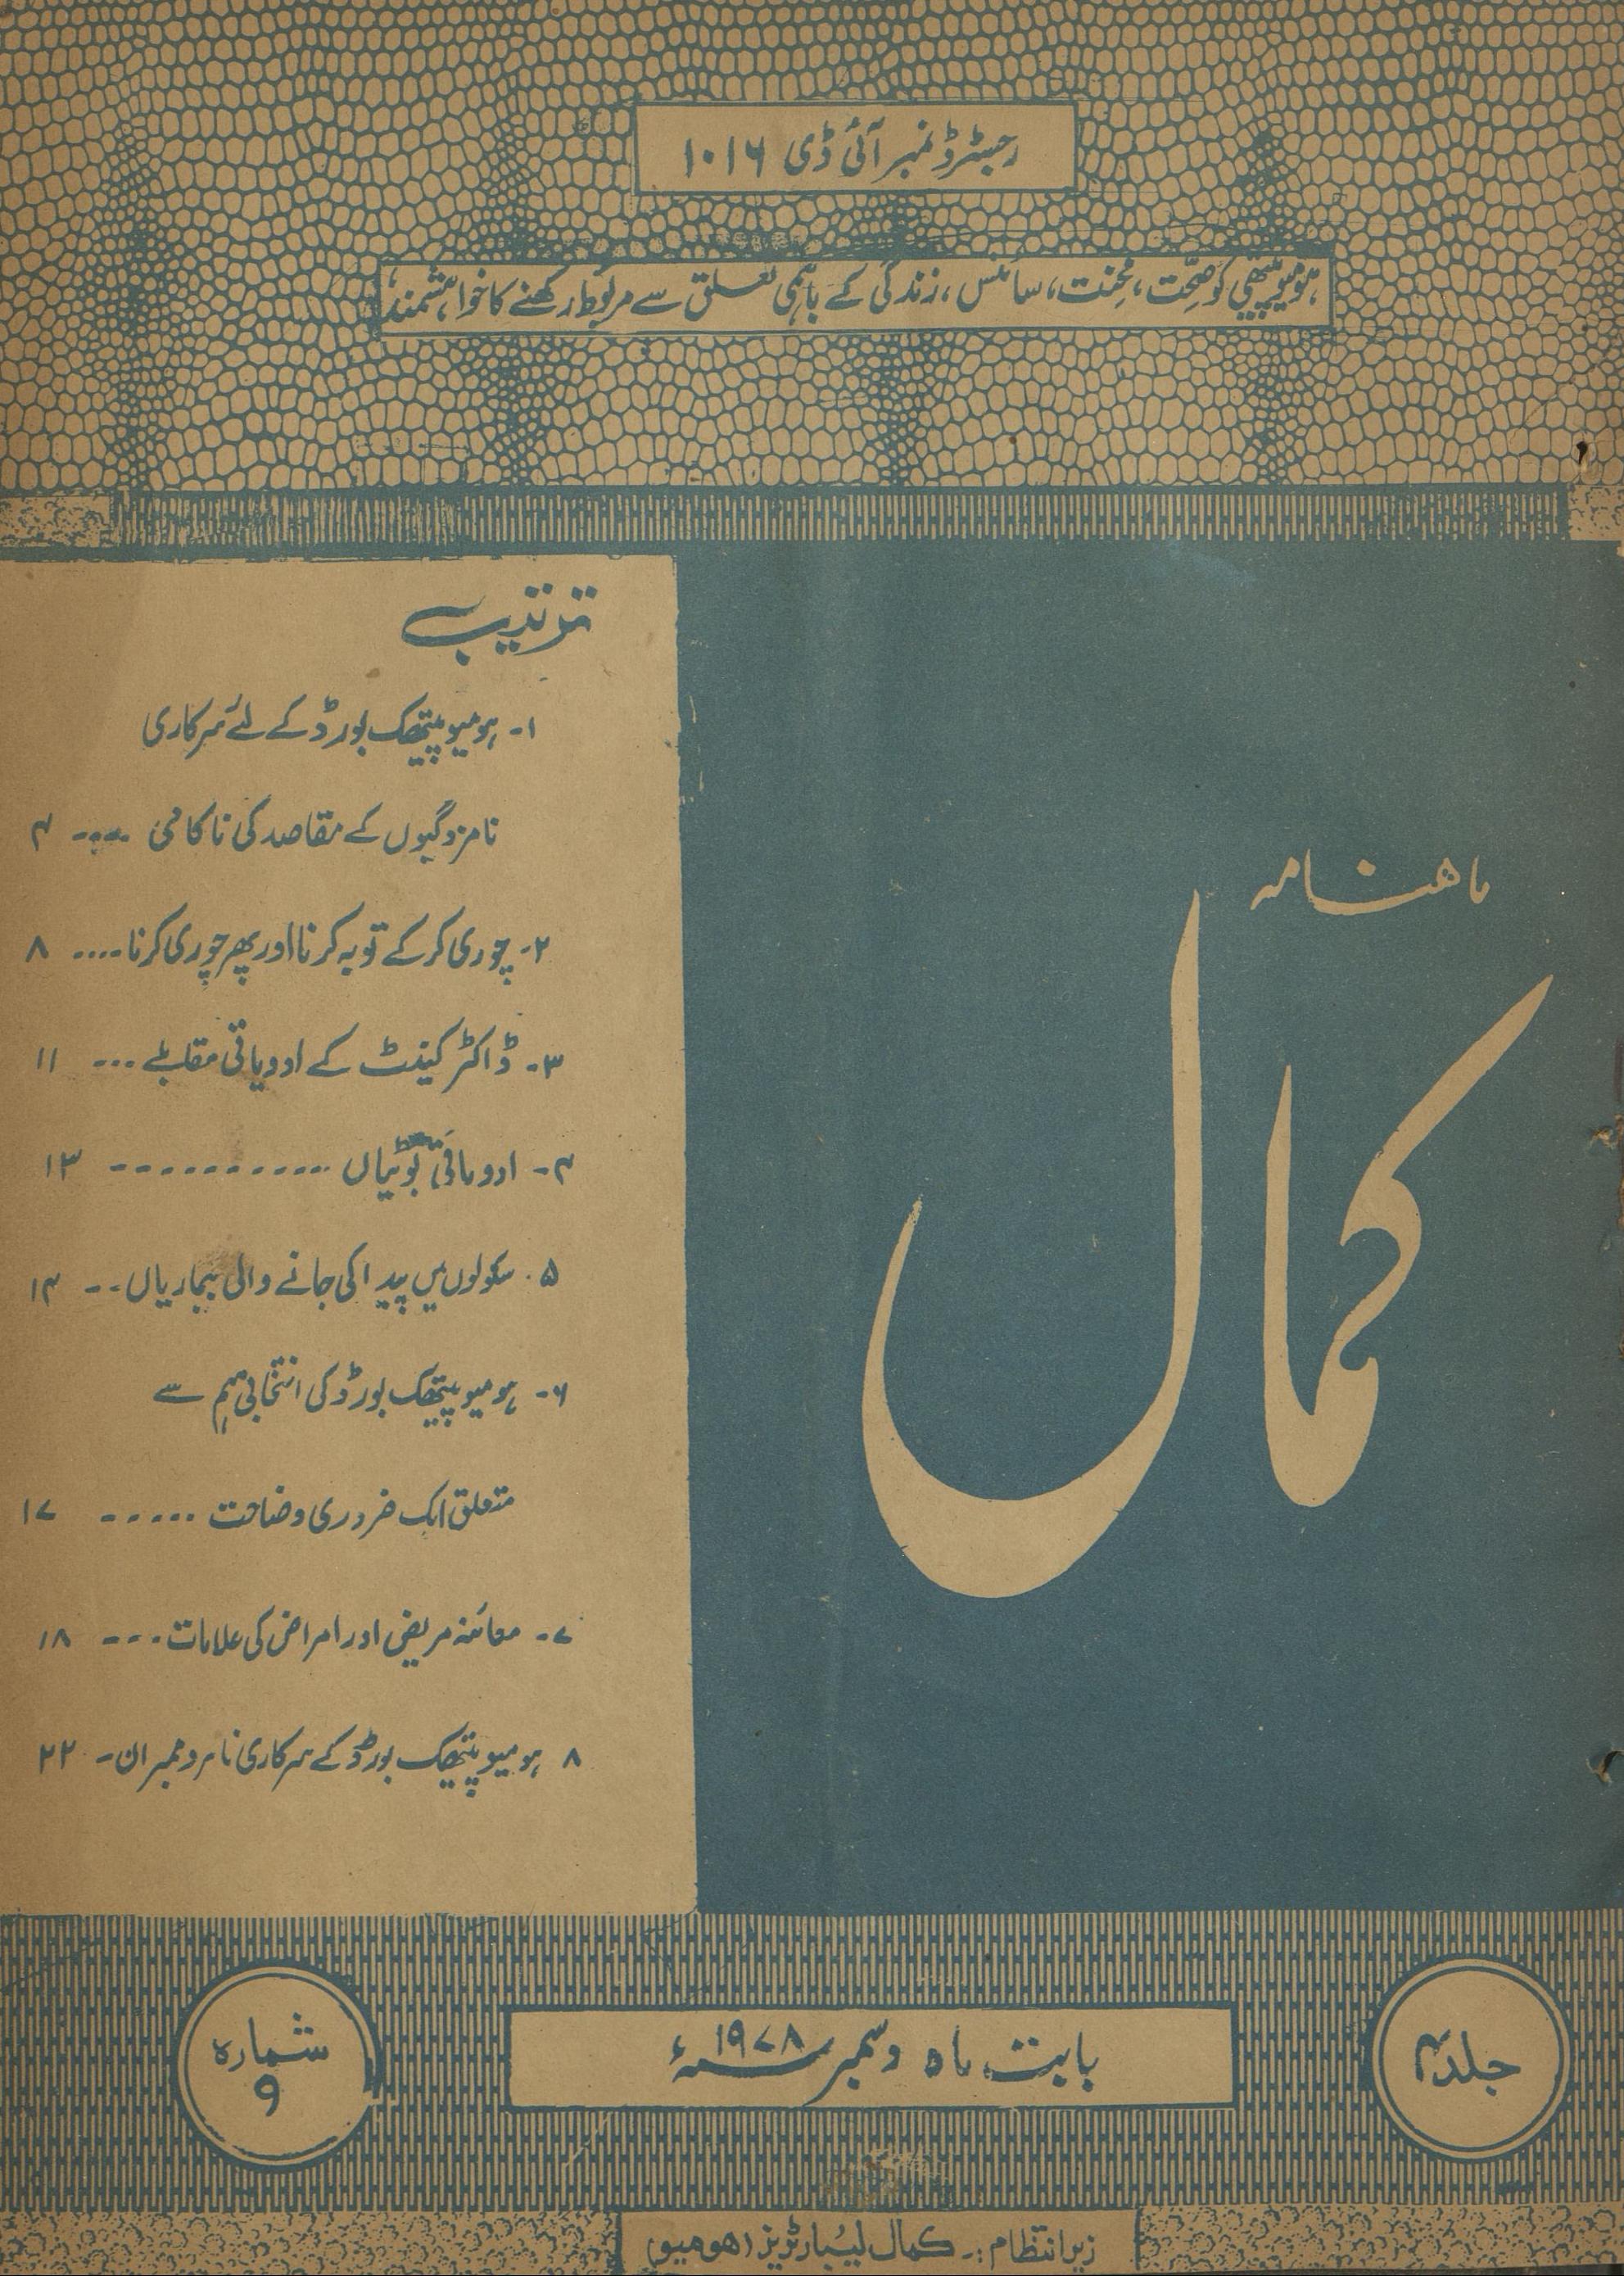 رجسٹرڈ نمبر آئی ڈی ۱۰۱۶
ہومیوپیتھی کو صحّت، محنت، سائنس، زندگی کے باہمی تعلق سے مربوط رکھنے کا خواہشمند
ماهنامه
کمال
ترتیب
۱- ہومیوپیتھک بورڈ کے لئے سرکاری
نامزدگیوں کے مقاصد کی ناکامی ---- ۴
۲- چوری کرکے توبہ کرنا اور پھر چوری کرنا .... ۸
۳- ڈاکٹر کینٹ کے ادویاتی مقابلے ... ۱۱
۴- ادویاتی بوٹیاں ------------ ۱۳
۵. سکولوں میں پیدا کی جانے والی بیماریاں -- ۱۴
۶- ہومیوپیتھک بورڈ کی انتخابی مہم سے
متعلق ایک ضروری وضاحت ------ ۱۷
۷- معائنہ مریض اور امراض کی علامات --- ۱۸
۸ ہومیوپیتھک بورڈ کے سرکاری نامزد ممبران - ۲۲
جلد ۴
بابت ماہ دسمبر ۱۹۷۸ء
شمارہ
۹
زیر انتظام :- کمال لیبارٹریز (ھومیو)